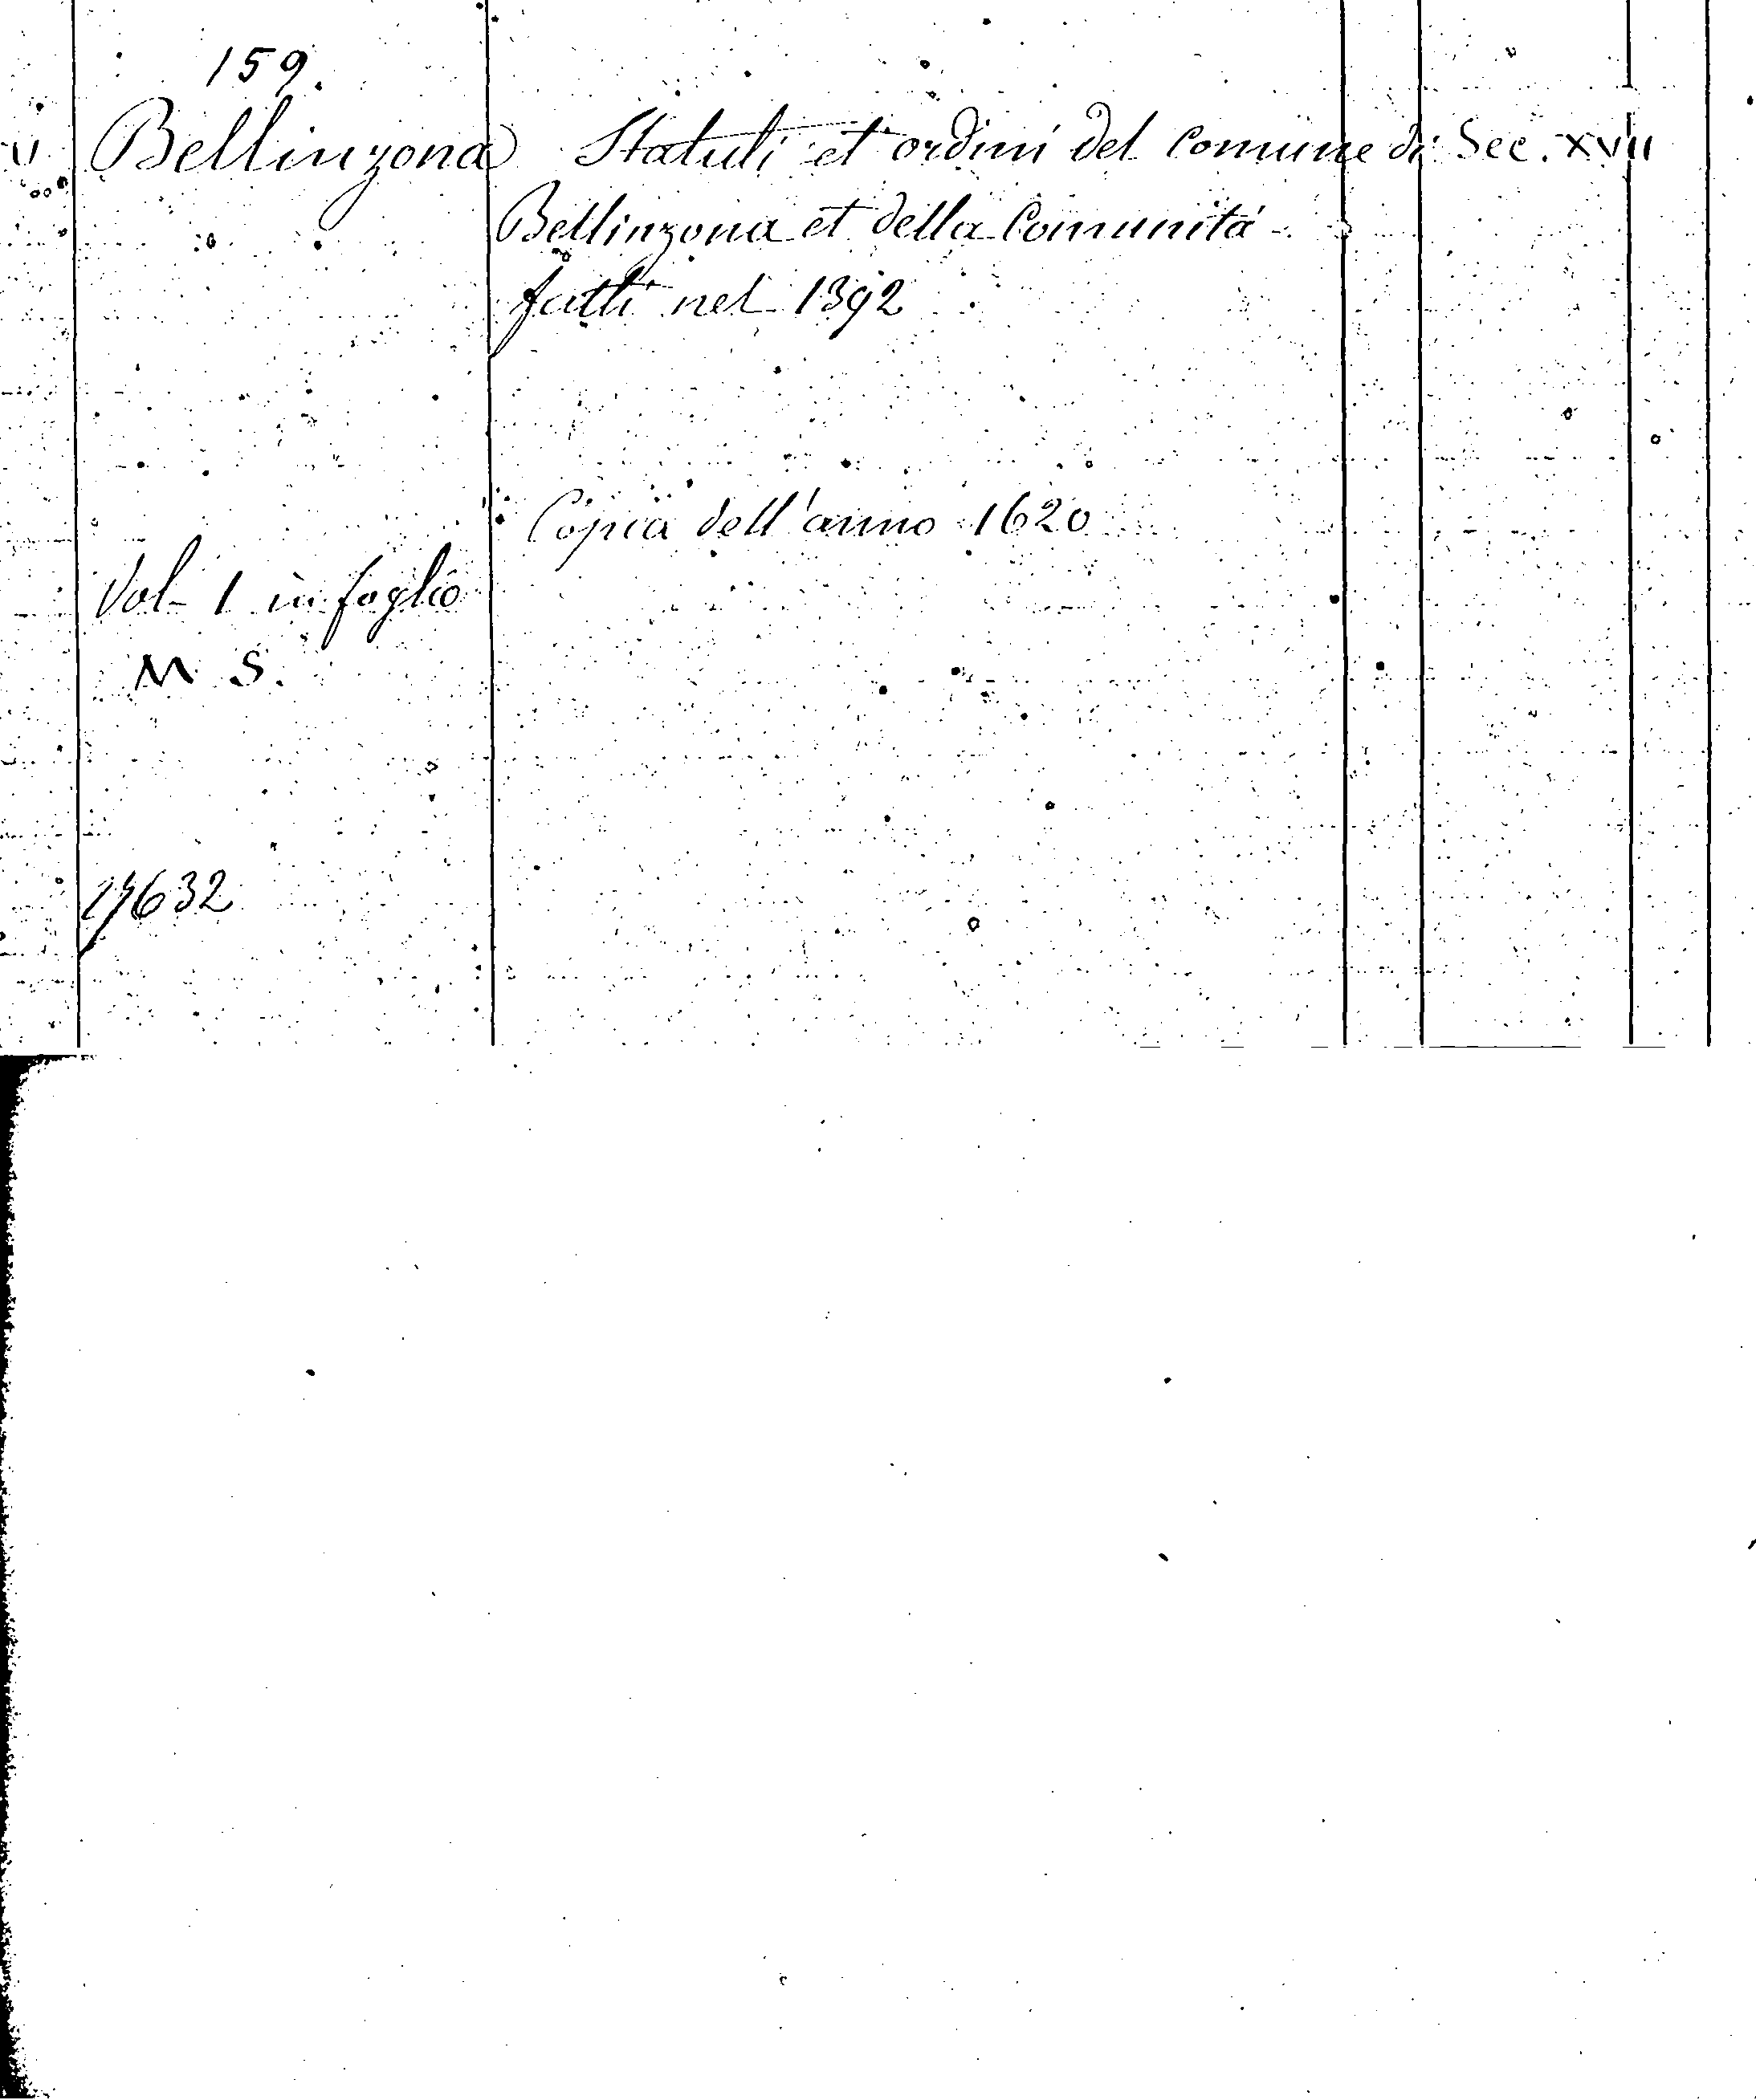 159.
Bellinzona Statuti et ordini del Comune di Sec. XVII
Bellinzona et della Comunità
fatti nel 1392
Copia dell'anno 1620
Vol. 1 in foglio
M S.